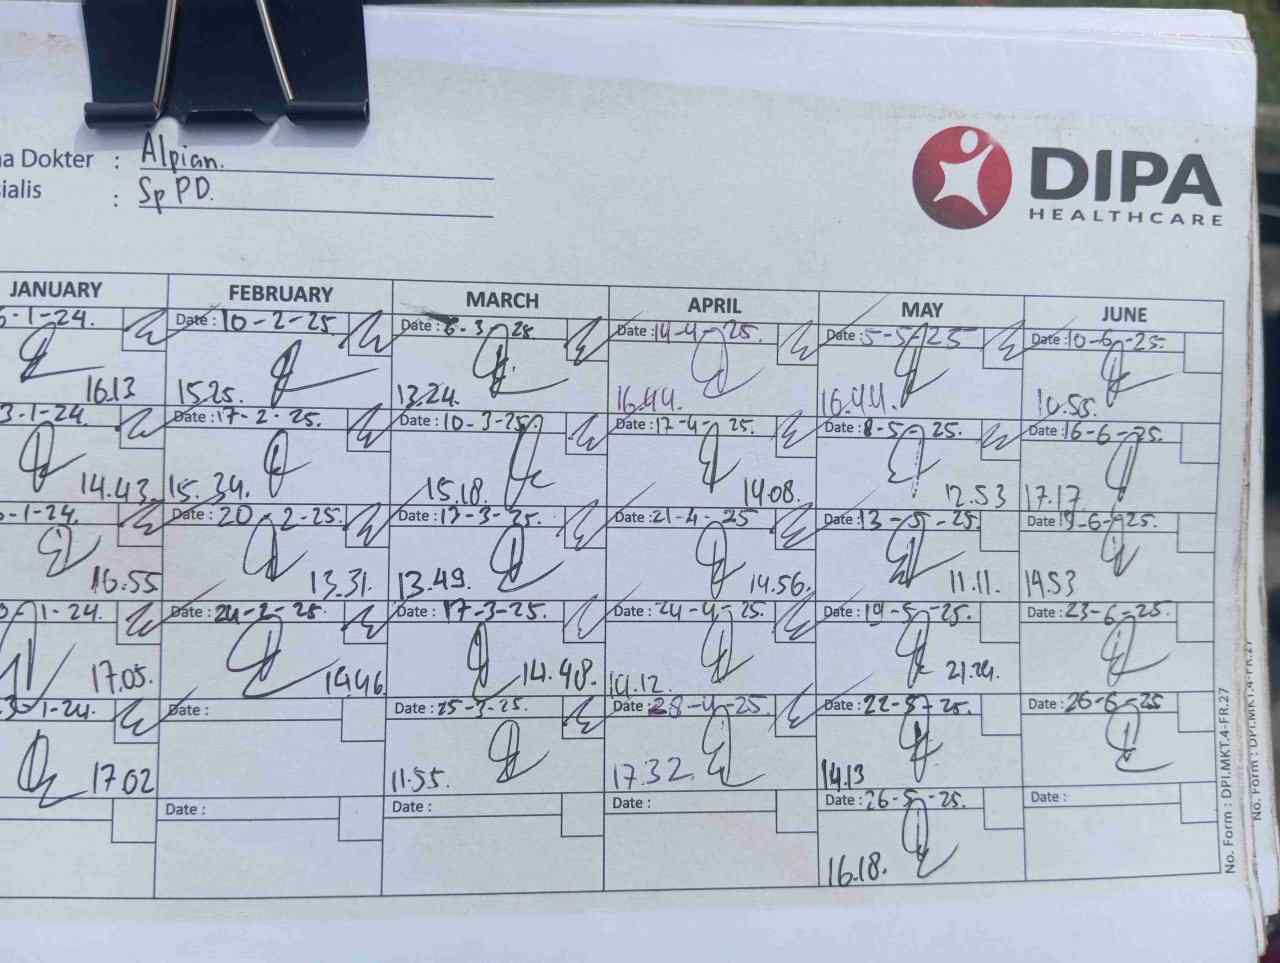 na Dokter : Alpian.
ialis : Sp PD.
DIPA
HEALTHCARE
JANUARY FEBRUARY MARCH APRIL MAY JUNE
-1-24. Date : 10-2-25. Date : 6-3-25. Date : 14-4-25. Date : 5-5-25 Date : 10-6-25.
16.13 15.25. 13.24. 16.44. 16.44. 10.55.
3-1-24. Date : 17-2-25. Date : 10-3-25. Date : 17-4-25. Date : 8-5-25. Date : 16-6-25.
14.43. 15.34. 15.18. 14.08. 12.53 17.17
-1-24. Date : 20-2-25. Date : 13-3-25. Date : 21-4-25 Date : 13-5-25 Date : 19-6-25.
16.55 13.31. 13.49. 14.56. 11.11. 14.53
1-24. Date : 24-2-25. Date : 17-3-25. Date : 24-4-25. Date : 19-5-25. Date : 23-6-25.
17.05. 14.46 14.48. 14.12. 21.24.
3-1-24. Date : Date : 25-3-25. Date : 28-4-25. Date : 22-5-25. Date : 26-6-25
17.02 11.55. 17.32. 14.13
Date : Date : Date : Date : 26-5-25. Date :
16.18.
No. Form : DPI.MKT.4-FR.27
No. Form : DPI.MKT.4-FR.27